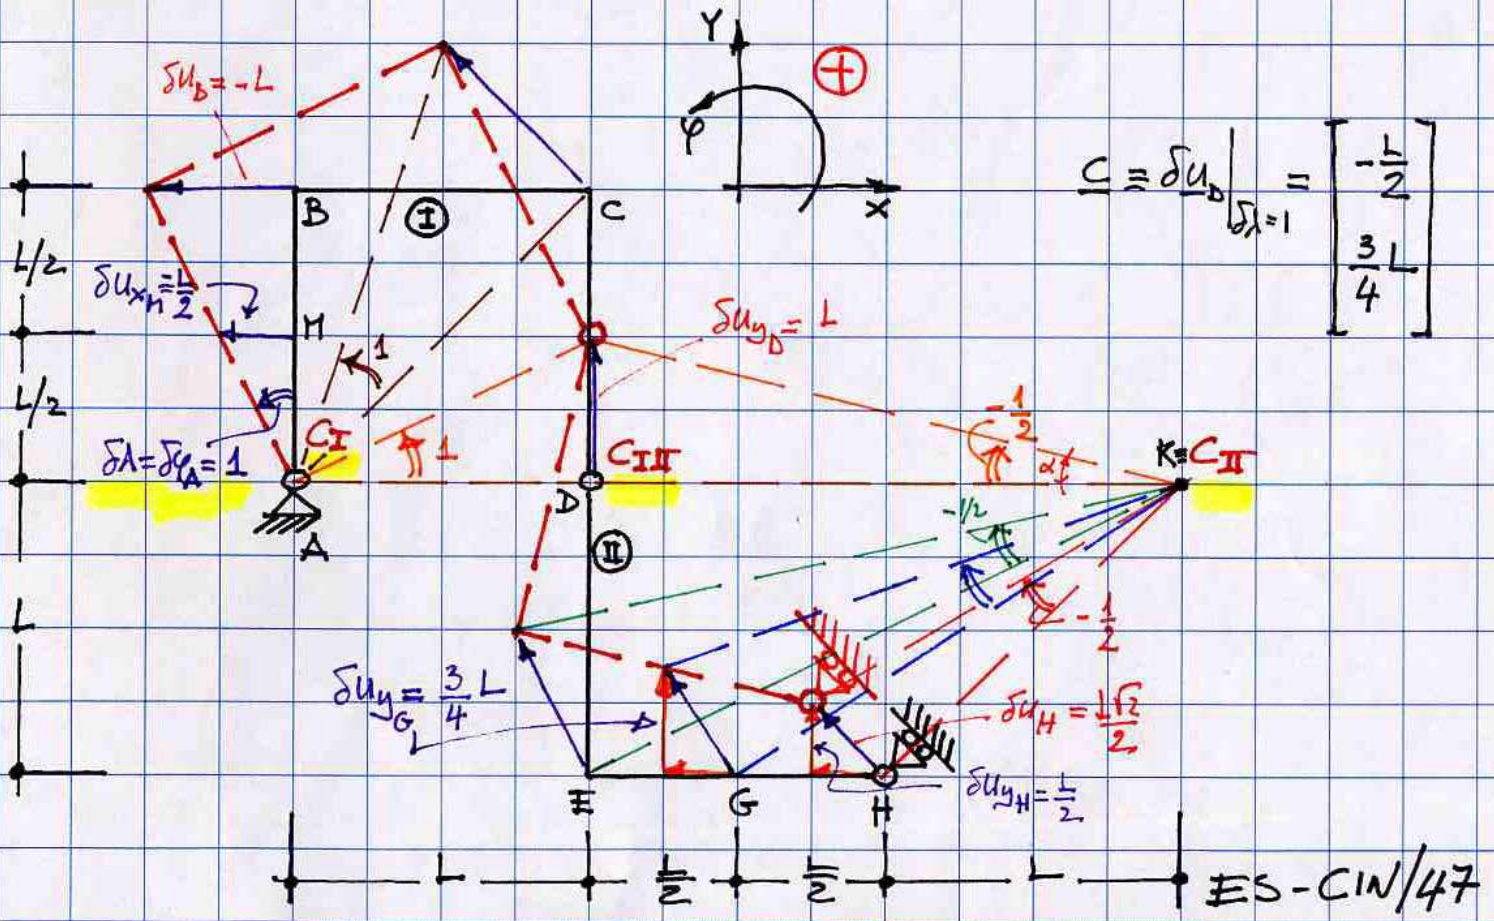 Y
⊕
φ
X
δu_B = -L
C ≡ δu_D |_{δλ=1} = [ -L/2 ; 3/4 L ]
B
Ⓘ
C
L/2
δu_{x_M} = L/2
M
δu_{y_D} = L
1
L/2
δA = δφ_A = 1
C_I
1
C_{III}
-1/2
α
K ≡ C_{II}
D
A
Ⓘ Ⓘ
-1/2
L
-1/2
δu_{y_G} = 3/4 L
δu_H = L√2/2
δu_{y_H} = L/2
E
G
H
L
L/2
L/2
L
ES-CIN/47